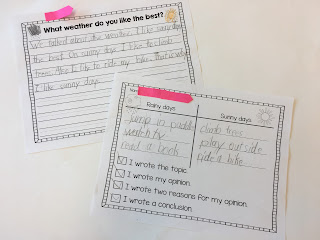 What weather do you like the best?
We talked about the weather. I like sunny days
the best. On sunny days I like to climb
trees. Also I like to ride my bike. That is why
I like sunny days.
Rainy days Sunny days
jump in puddles climb trees
watch tv play outside
read a book ride a bike
I wrote the topic.
I wrote my opinion.
I wrote two reasons for my opinion.
I wrote a conclusion.